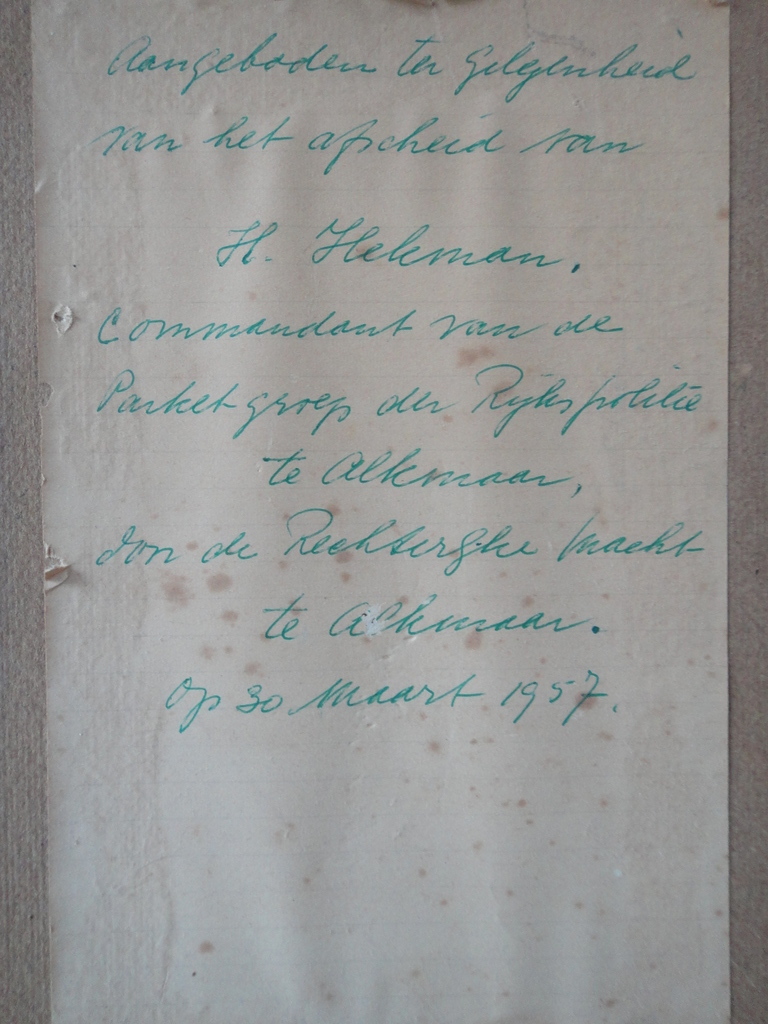 Aangeboden ter gelegenheid
van het afscheid van
H. Hekman.
Commandant van de
Parketgroep der Rijkspolitie
te Alkmaar,
don de Rechterlijke Macht
te Alkmaar.
Op 30 Maart 1957.